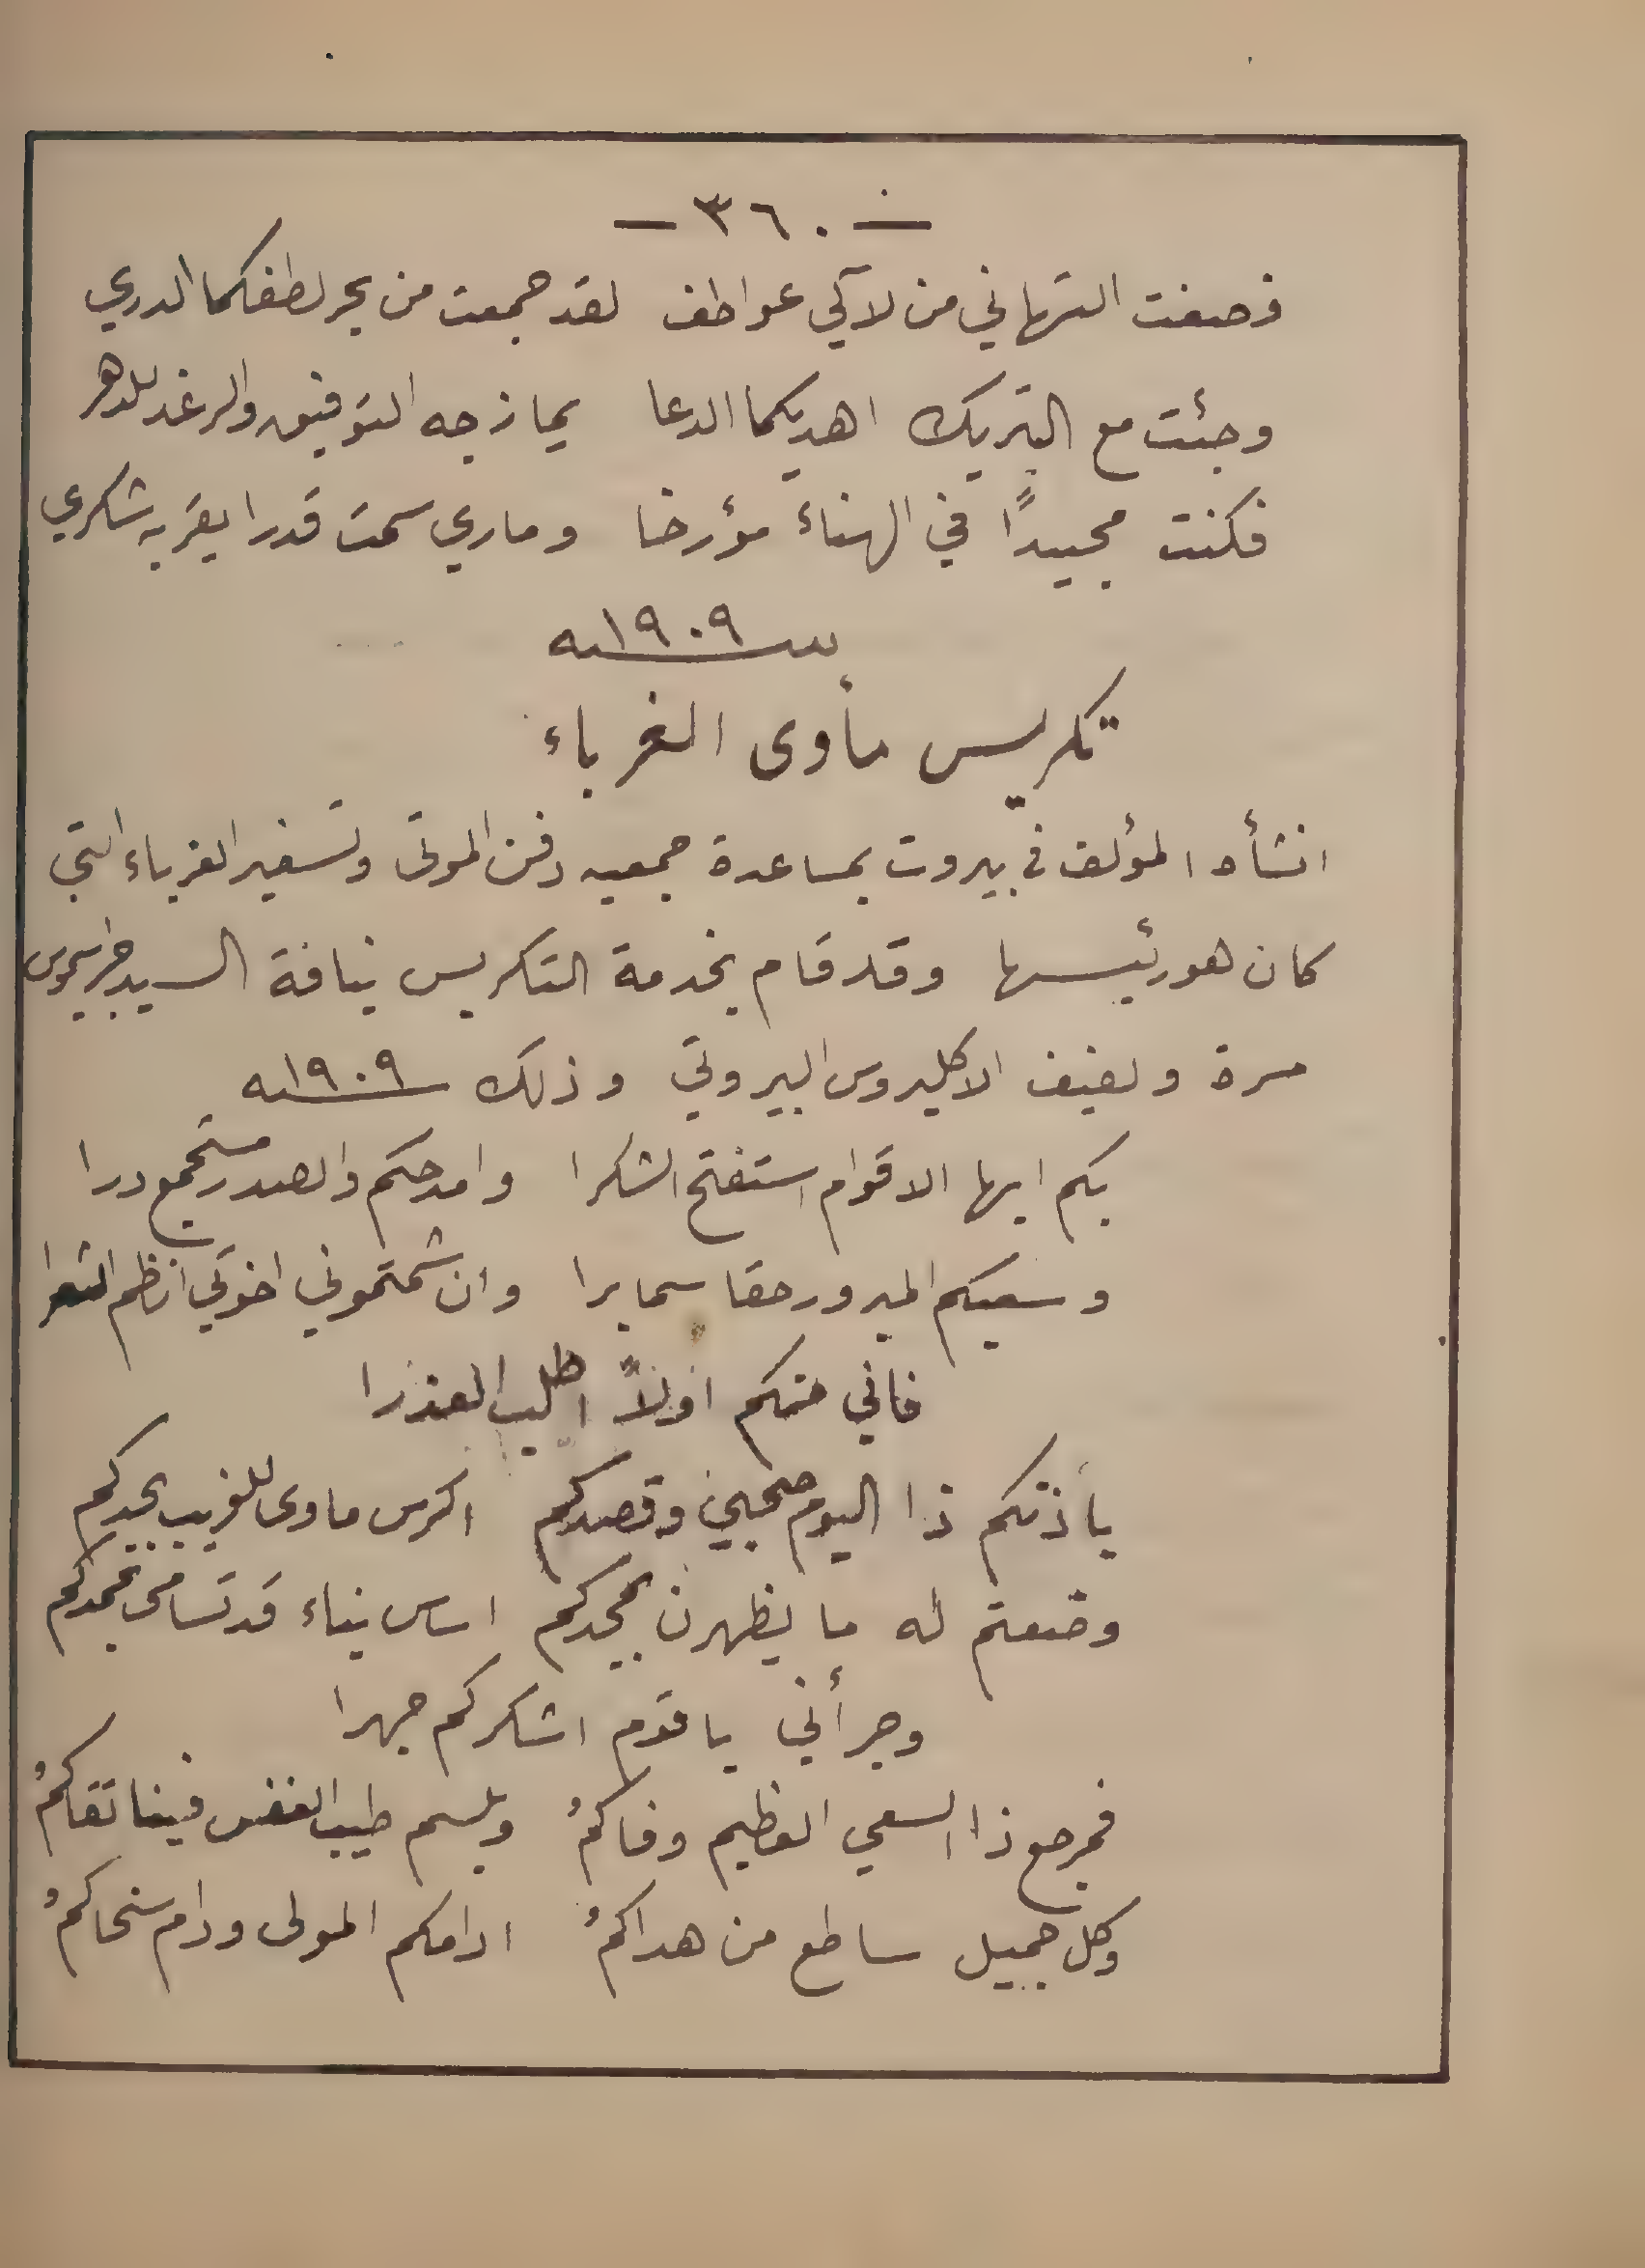 — ٣٦٠ —
فصغت التهاني من لآلي عواطف لقد جمعت من بحر لطفكما الدري
وجئت مع التبريك اهديكما الدعا يمازجه التوفيق والرغد للدهر
فكنت مجيدًا في الهناء مؤرخا وماري سمت قدرا يقر به شكري
سنة ١٩٠٩
تكريس مأوى الغرباء
انشأه المؤلف في بيروت بمساعدة جمعيه دفن الموتى وتسفير الغرباء التي
كان هو رئيسها وقد قام بخدمة التكريس نيافة السيد جراسيموس
مسرة ولفيف الاكليروس البيروتي وذلك سنة ١٩٠٩
بكم ايها الاقوام استفتح الشكرا وامدحكم والصدر مستجمع درا
وسعيكم المبرور حقا سما برا وان شمتموني اخوتي انظم الشعرا
فاني منكم اولاً اطلب العذرا
بأذنكم ذا اليوم صحبي وقصدكم اكرس ماوى للغريب بجدكم
وضعتم له ما يظهرن بمجدكم اساس بناء قد تسامى بحمدكم
وجرأني يا قوم اشكركم جهرا
فمرجع ذا السعي العظيم وفاكمُ وبلسم طيب النفس فينا تقاكمُ
وكل جميل ساطع من هداكمُ ادامكم المولى ودام سخاكمُ